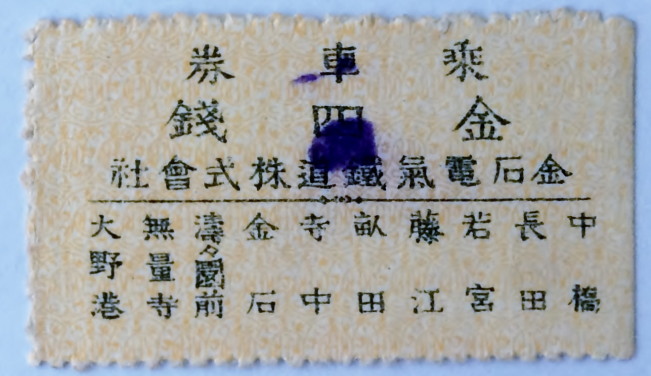 乘車券
金四錢
金石電氣鐵道株式會社
中橋
長田
若宮
藤江
畝田
寺中
金石
濤々園前
無量寺
大野港